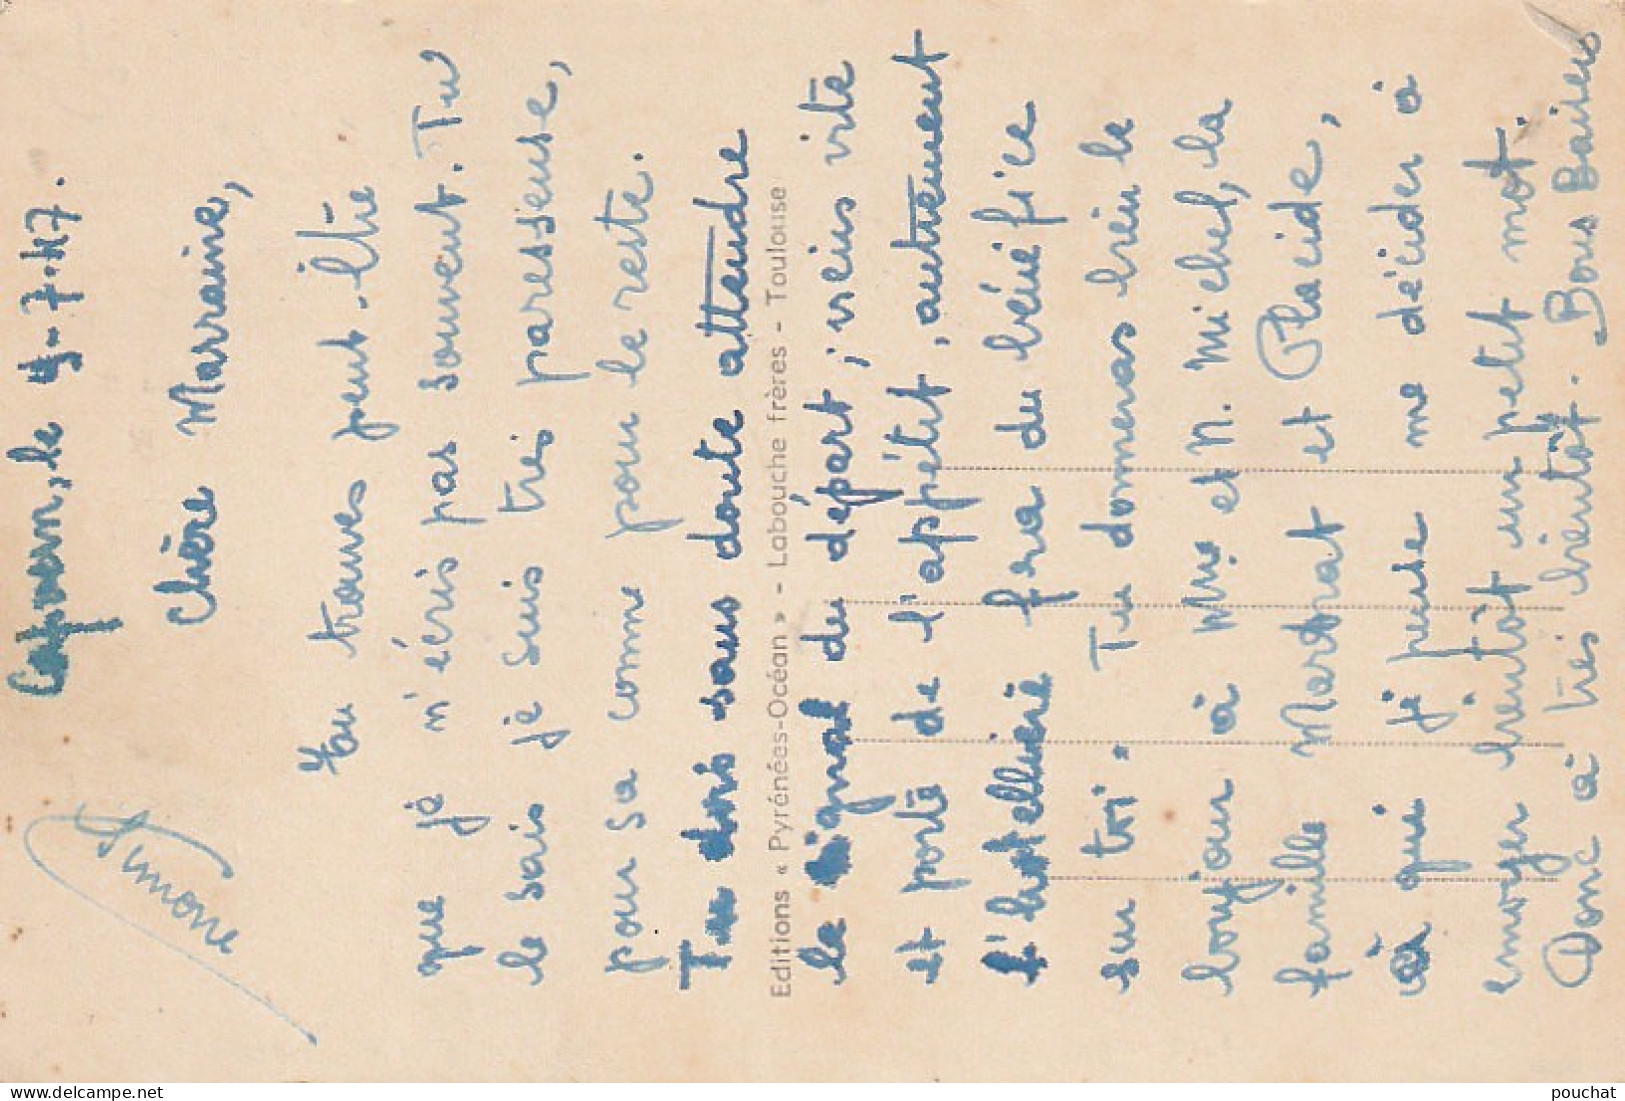 Capvern, le 4-7-47.
Chère Marraine,
Tu trouves peut-être
que je n'écris pas souvent. Tu
le sais je suis très paresseuse,
pour sa comme pour le reste.
Tu dois sans doute attendre
Editions « Pyrénées-Océan » - Labouche frères - Toulouse
le signal du départ ; viens vite
et porte de l'appétit, autrement
l'hotellière fera du bénéfice
sur toi. Tu donneras bien le
bonjour à Mme et M. Michel, la
famille Martnat et Placide,
à qui je pense me décider à
envoyer bientôt un petit mot.
Donc à très bientôt. Bons Baisers
Simone
pouchat